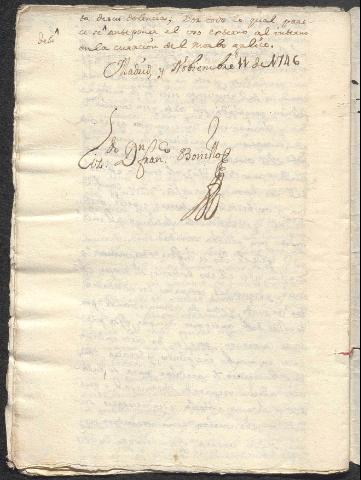 ta de su dolencia, Por todo lo qual pare
ce se anteponer el uso externo al interno
en la curacion del Morbo galico.
Madrid y Nobiembre 11 de 1746
Dn Franco Bonillo